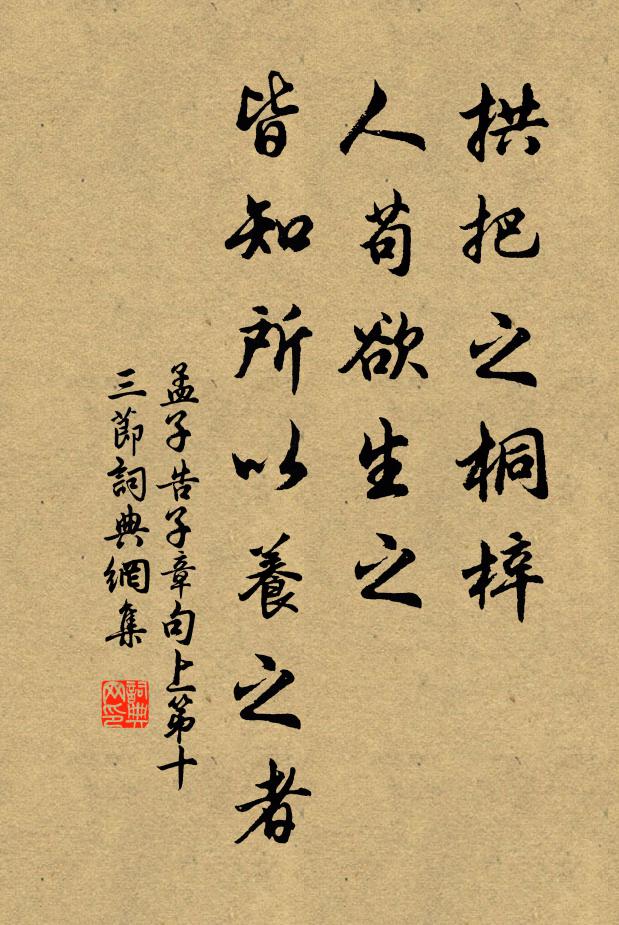 拱把之桐梓
人苟欲生之
皆知所以養之者
孟子告子章句上第十
三節詞典網集
詞典
网印